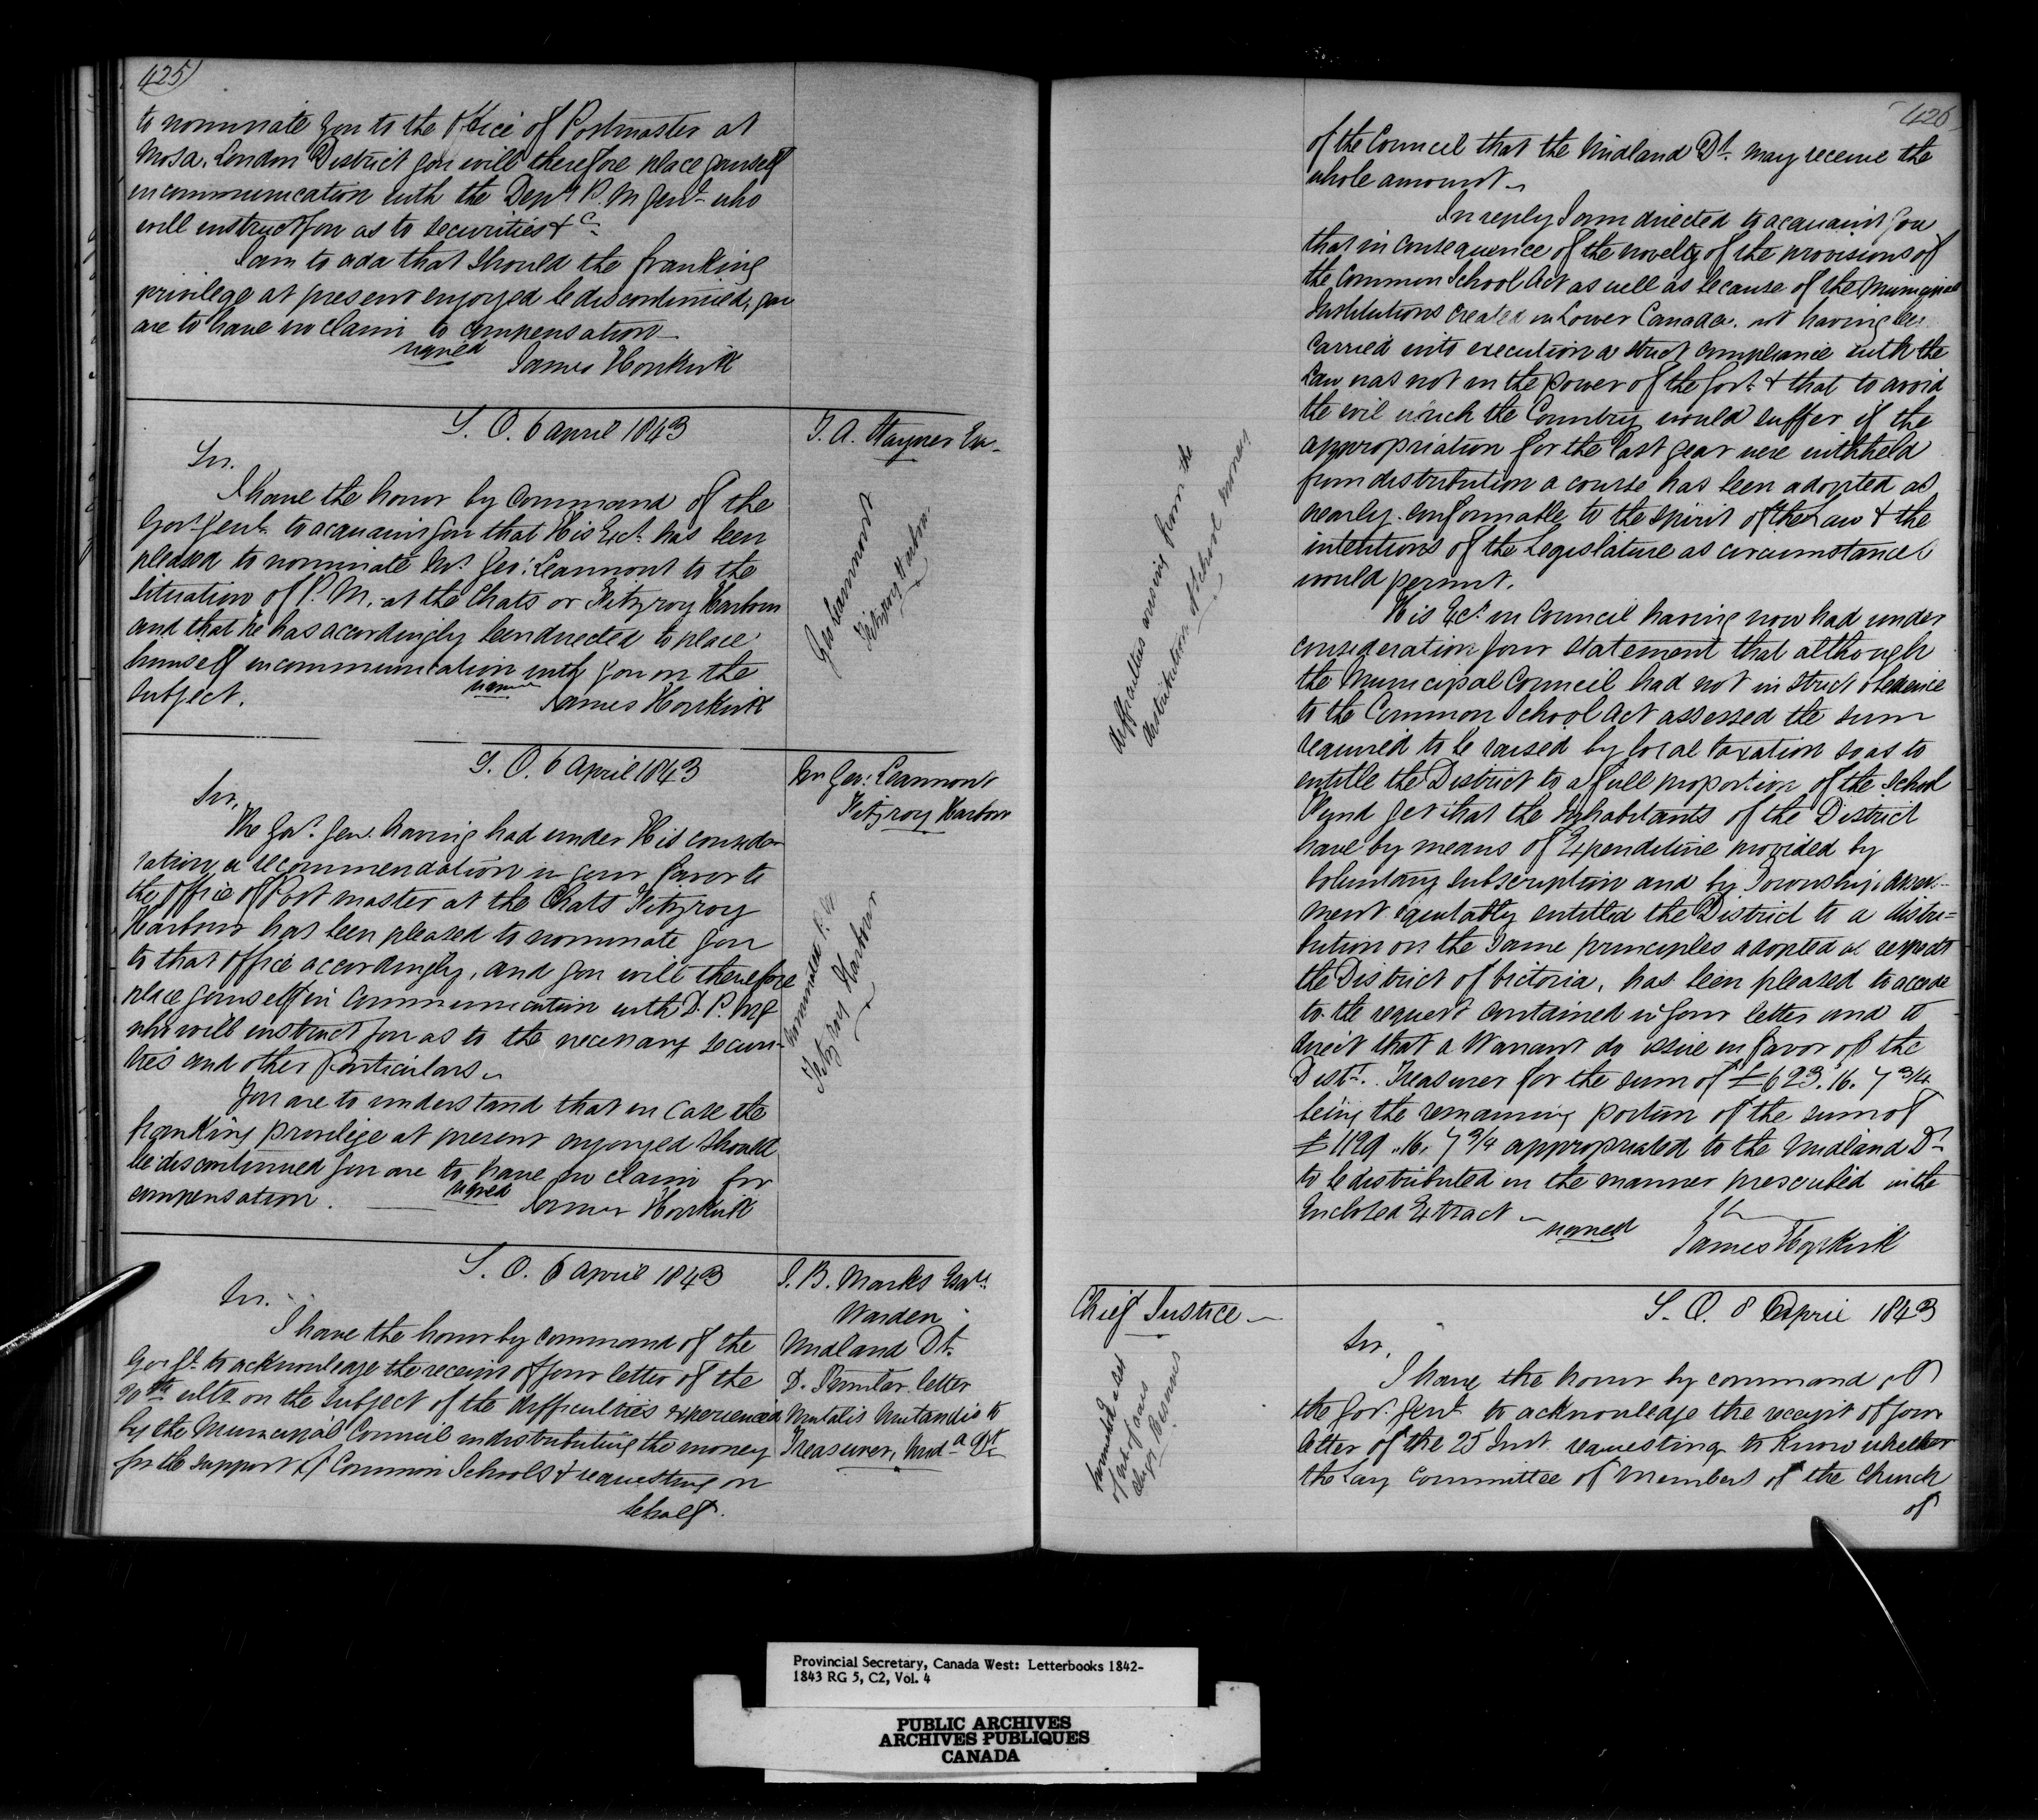 425
to nominate you to the Office of Postmaster at
Mosa, London District you will therefore place yourself
in communication with the Depy P. M Genl who
will instruct you as to securities &c
I am to add that should the franking
privilege at present enjoyed be discontinued, you
are to have no claim to compensation
signed
James Hopkirk
S. O. 6 April 1843
T. A. Stayner Esq
Sir.
I have the honor by Command of the
Govr Genl to acquaint you that His Excy has been
pleased to nominate Mr Geo: Learmont to the
situation of P. M. at the Chats or Fitzroy Harbour
and that he has accordingly been directed to place
himself in communication with you on the
subject.
signed
James Hopkirk
Geo Learmont
Fitzroy Harbour
S. O. 6 April 1843
Mr Geo: Learmont
Fitzroy Harbour
Sir,
The Govr Gen. having had under His conside-
ration a recommendation in your favor to
the Office of Post master at the Chats Fitzroy
Harbour has been pleased to nominate you
to that office accordingly, and you will therefore
place yourself in communication with D. P. M G
who will instruct you as to the necessary securi-
ties and other particulars
nominated P. M
Fitzroy Harbour
You are to understand that in case the
franking privilege at present enjoyed should
be discontinued you are to have no claim for
compensation.
signed
James Hopkirk
S. O. 6 April 1843
S. B. Marks Esqre
Warden
Midland Dt
D. Similar letter
Mutatis Mutandis to
Treasurer, Midd Dt
Sir.
I have the honor by command of the
Gov Gl to acknowledge the receipt of your letter of the
ulto on the subject of the difficulties experienced
by the Municipal Council in distributing the money
for the support of Common Schools & requesting on
behalf.
426
of the Council that the Midland Dt may receive the
whole amount
In reply I am directed to acquaint you
that in consequence of the novelty of the provisions of
the Common School Act as well as because of the Municipal
Institutions created in Lower Canada not having been
carried into execution a strict compliance with the
Law was not in the power of the Govt & that to avoid
the evil which the Country would suffer if the
appropriation for the last year were withheld
from distribution a course has been adopted as
nearly conformable to the spirit of the Law & the
intentions of the Legislature as circumstances
would permit.
Difficulties arising from the
distribution of School money
His Excy in Council having now had under
consideration your statement that although
the Municipal Council had not in strict obedience
to the Common School Act assessed the sum
required to be raised by local taxation so as to
entitle the District to a full proportion of the School
Fund yet that the Inhabitants of the District
have by means of Expenditure provided by
voluntary subscription and by Township Assess-
ment equitably entitled the District to a distri-
bution on the same principles adopted as respects
the District of Victoria, has been pleased to accede
to the request contained in your letter and to
direct that a Warrant do issue in favor of the
Distt. Treasurer for the sum of £623.16.7¾
being the remaining portion of the sum of
£1129.16.7¾ appropriated to the Midland Dt
to be distributed in the manner prescribed in the
Enclosed Extract
signed
James Hopkirk
Chief Justice
S. O. 8 April 1843
Sir,
I have the honor by command of
the Govr Genl to acknowledge the receipt of your
letter of the 25 Inst requesting to know whether
the Lay Committee of Members of the Church
of
Clergy Reserves
Provincial Secretary, Canada West: Letterbooks 1842-
1843 RG 5, C2, Vol. 4
PUBLIC ARCHIVES
ARCHIVES PUBLIQUES
CANADA